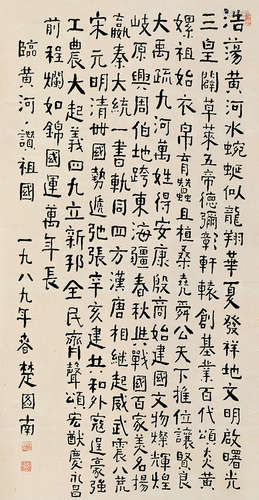 浩蕩黄河水蜿蜒似龍翔華夏發祥地文明啟曙光
三皇闢草萊五帝德彌彰軒轅創基業百代頌炎黄
嫘祖始衣帛育蠶且植桑堯舜公天下推位讓賢良
大禹疏九河萬姓得安康殷商始建國文物燦輝煌
岐原興周伯地跨東海疆春秋迄戰國百家美名揚
嬴秦大統一書軌同四方漢唐相繼起威武震八荒
宋元明清世國勢遞弛張辛亥建共和外寇逞豪強
工農大起義四九立新邦全民齊聲頌宏猷慶永昌
前程爛如錦國運萬年長
臨黄河讚祖國 一九八九年春楚圖南